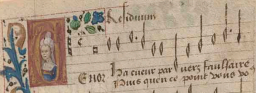 Residuum
Tenor
Ha cueur par vers faulsaire
Puis quen ce point vous vo